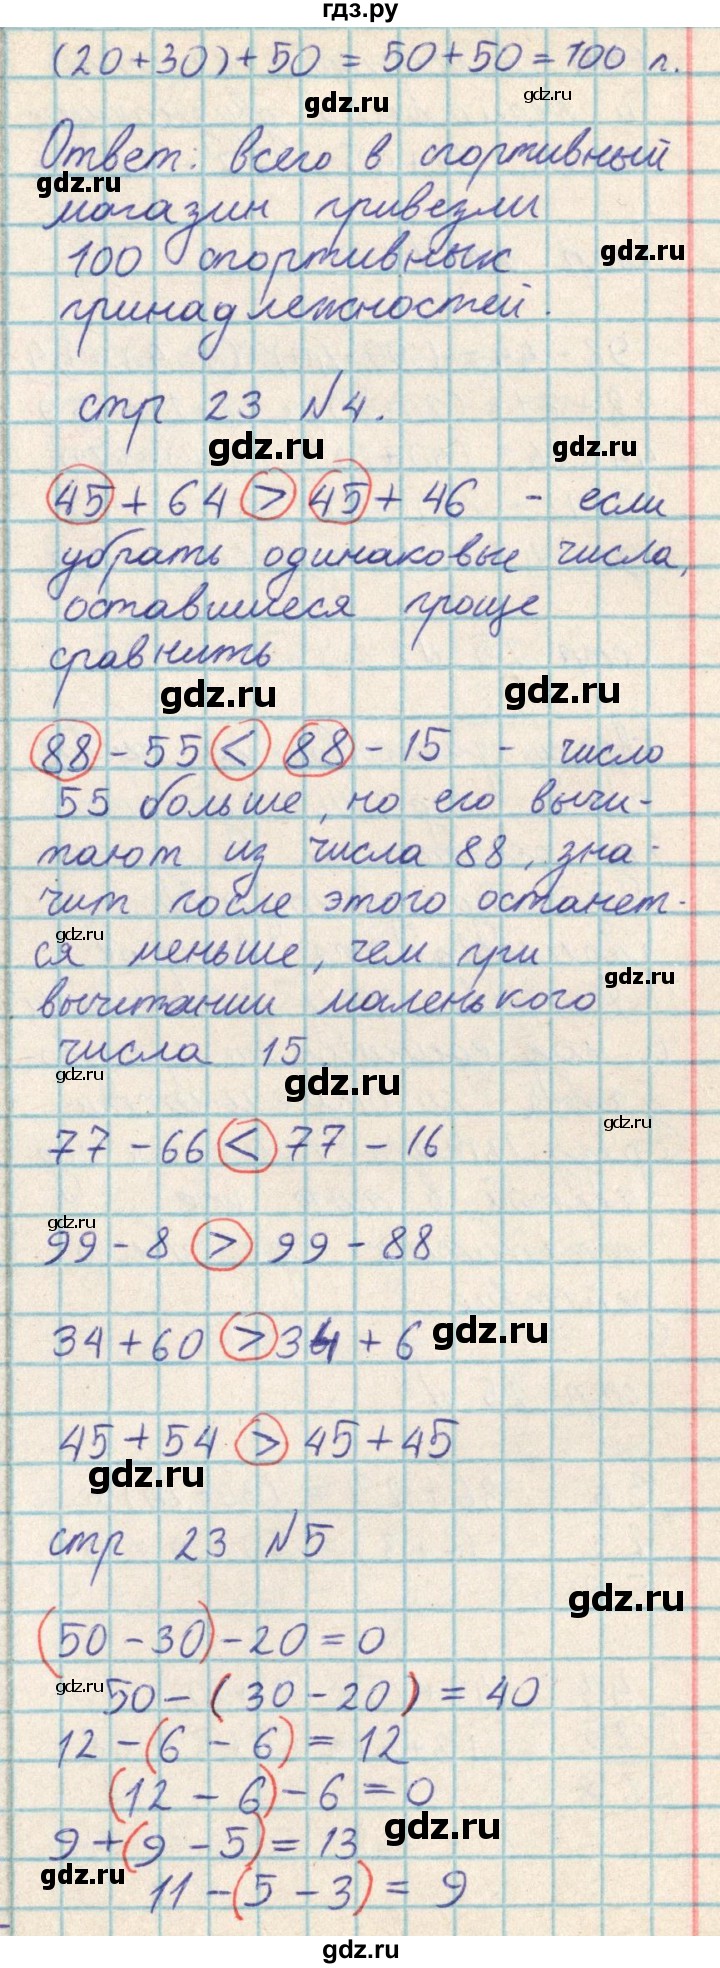 гдз.ру
(20+30)+50 = 50+50 = 100 п.
gdz.ru
gdz.ru
Ответ: всего в спортивный
gdz.ru
магазин привезли
100 спортивных
gdz.ru
принадлежностей.
стр 23 №4.
gdz.ru
gdz.ru
45 + 64 > 45 + 46 - если
убрать одинаковые числа,
оставшиеся проще
сравнить
gdz.ru
gdz.ru
88 - 55 < 88 - 15 - число
55 больше, но его вычи-
тают из числа 88, зна-
чит после этого останет-
gdz.ru
ся меньше, чем при
gdz.ru
вычитании маленького
числа 15.
gdz.ru
gdz.ru
gdz.ru
77 - 66 < 77 - 16
gdz.ru
99 - 8 > 99 - 88
34 + 60 > 34 + 6
gdz.ru
45 + 54 > 45 + 45
gdz.ru
стр 23 №5
gdz.ru
(50 - 30) - 20 = 0
gdz.ru
50 - (30 - 20) = 40
12 - (6 - 6) = 12
(12 - 6) - 6 = 0
gdz.ru
9 + (9 - 5) = 13
gdz.ru
11 - (5 - 3) = 9
gdz.ru